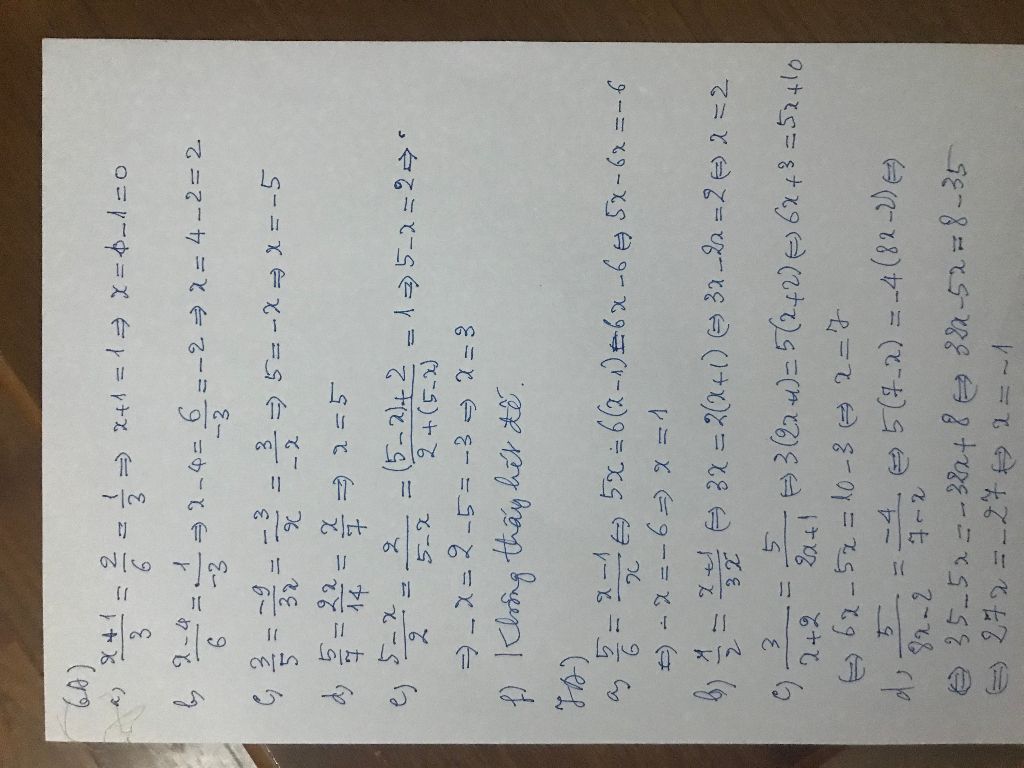 6A)
a) (x+1)/3 = 2/6 = 1/3 ⇒ x+1 = 1 ⇒ x = 1-1 = 0
b) (x-4)/6 = 1/-3 ⇒ x-4 = 6/-3 = -2 ⇒ x = 4-2 = 2
c) 3/5 = -9/3x = -3/x = 3/-x ⇒ 5 = -x ⇒ x = -5
d) 5/7 = 2x/14 = x/7 ⇒ x = 5
e) (5-x)/2 = 2/(5-x) = ((5-x)+2)/(2+(5-x)) = 1 ⇒ 5-x = 2 ⇒
⇒ -x = 2-5 = -3 ⇒ x = 3
f) Không thấy hết đề.
7A)
a) 5/6 = (x-1)/x ⇔ 5x = 6(x-1) = 6x-6 ⇔ 5x-6x = -6
⇔ -x = -6 ⇒ x = 1
b) 1/2 = (x+1)/3x ⇔ 3x = 2(x+1) ⇔ 3x-2x = 2 ⇔ x = 2
c) 3/(x+2) = 5/(2x+1) ⇔ 3(2x+1) = 5(x+2) ⇔ 6x+3 = 5x+10
⇔ 6x-5x = 10-3 ⇔ x = 7
d) 5/(8x-2) = -4/(7-x) ⇔ 5(7-x) = -4(8x-2) ⇔
⇔ 35-5x = -32x+8 ⇔ 32x-5x = 8-35
⇔ 27x = -27 ⇔ x = -1